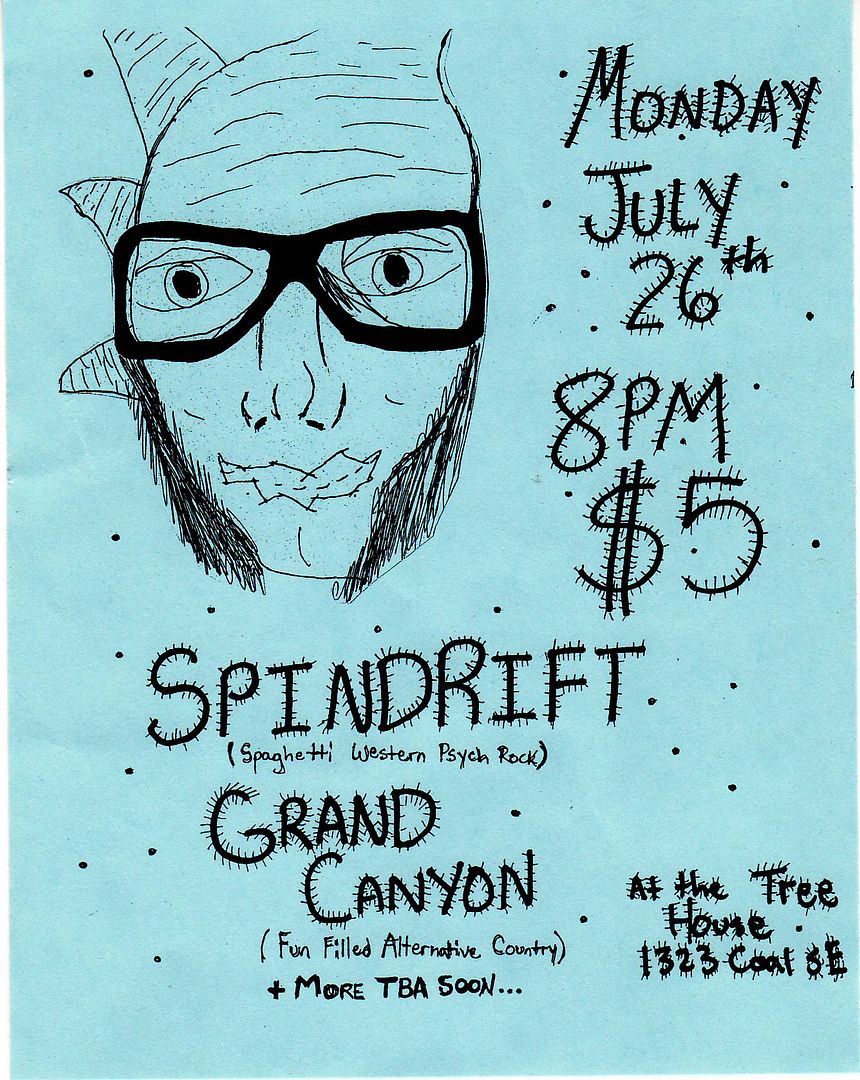 MONDAY
JULY
26th
8PM
$5
SPINDRIFT
(Spaghetti Western Psych Rock)
GRAND
CANYON
(Fun Filled Alternative Country)
+ MORE TBA SOON...
At the Tree
House
1323 Coal SE